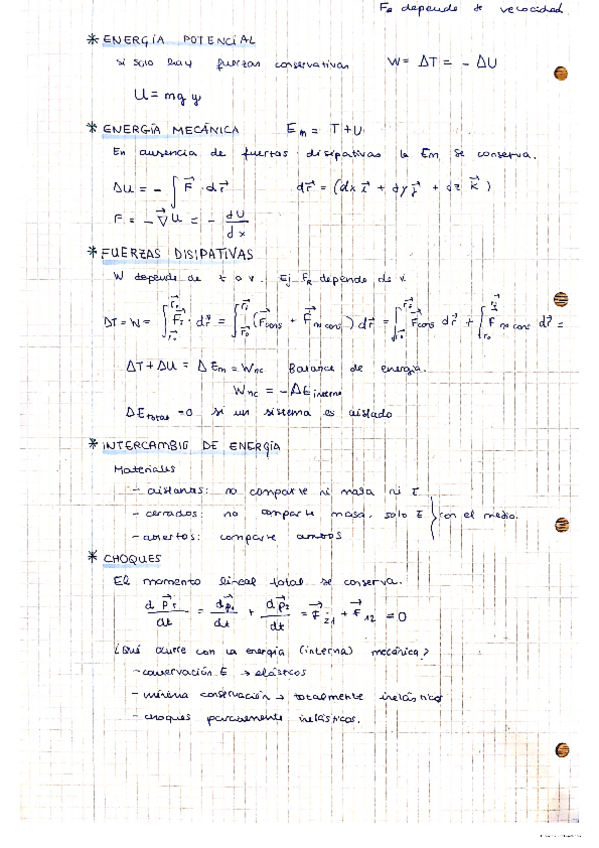 FR depende de velocidad
* ENERGÍA POTENCIAL
si solo hay fuerzas conservativas W = ΔT = - ΔU
U = mg y
* ENERGÍA MECÁNICA Em = T + U
En ausencia de fuerzas disipativas la Em se conserva.
ΔU = - ∫ F⃗ · dr⃗ dr⃗ = (dx i⃗ + dy j⃗ + dz k⃗)
F = - ∇⃗U = - dU/dx
* FUERZAS DISIPATIVAS
W depende de t o v. Ej FR depende de v.
ΔT = W = ∫ F⃗ · dr⃗ = ∫ (F⃗cons + F⃗no cons) dr⃗ = ∫ F⃗cons dr⃗ + ∫ F⃗no cons dr⃗ =
ΔT + ΔU = ΔEm = Wnc Balance de energía.
Wnc = - ΔE interna
ΔE total = 0 si un sistema es aislado
* INTERCAMBIO DE ENERGÍA
Materiales
- aislados: no comparte ni masa ni E.
- cerrados: no comparte masa, solo E } con el medio.
- abiertos: comparte ambos
* CHOQUES
El momento lineal total se conserva.
dP⃗T/dt = dp⃗1/dt + dp⃗2/dt = F⃗21 + F⃗12 = 0
¿Qué ocurre con la energía (interna) mecánica?
- conservación E → elásticos
- mínima conservación → totalmente inelásticos
- choques parcialmente inelásticos.